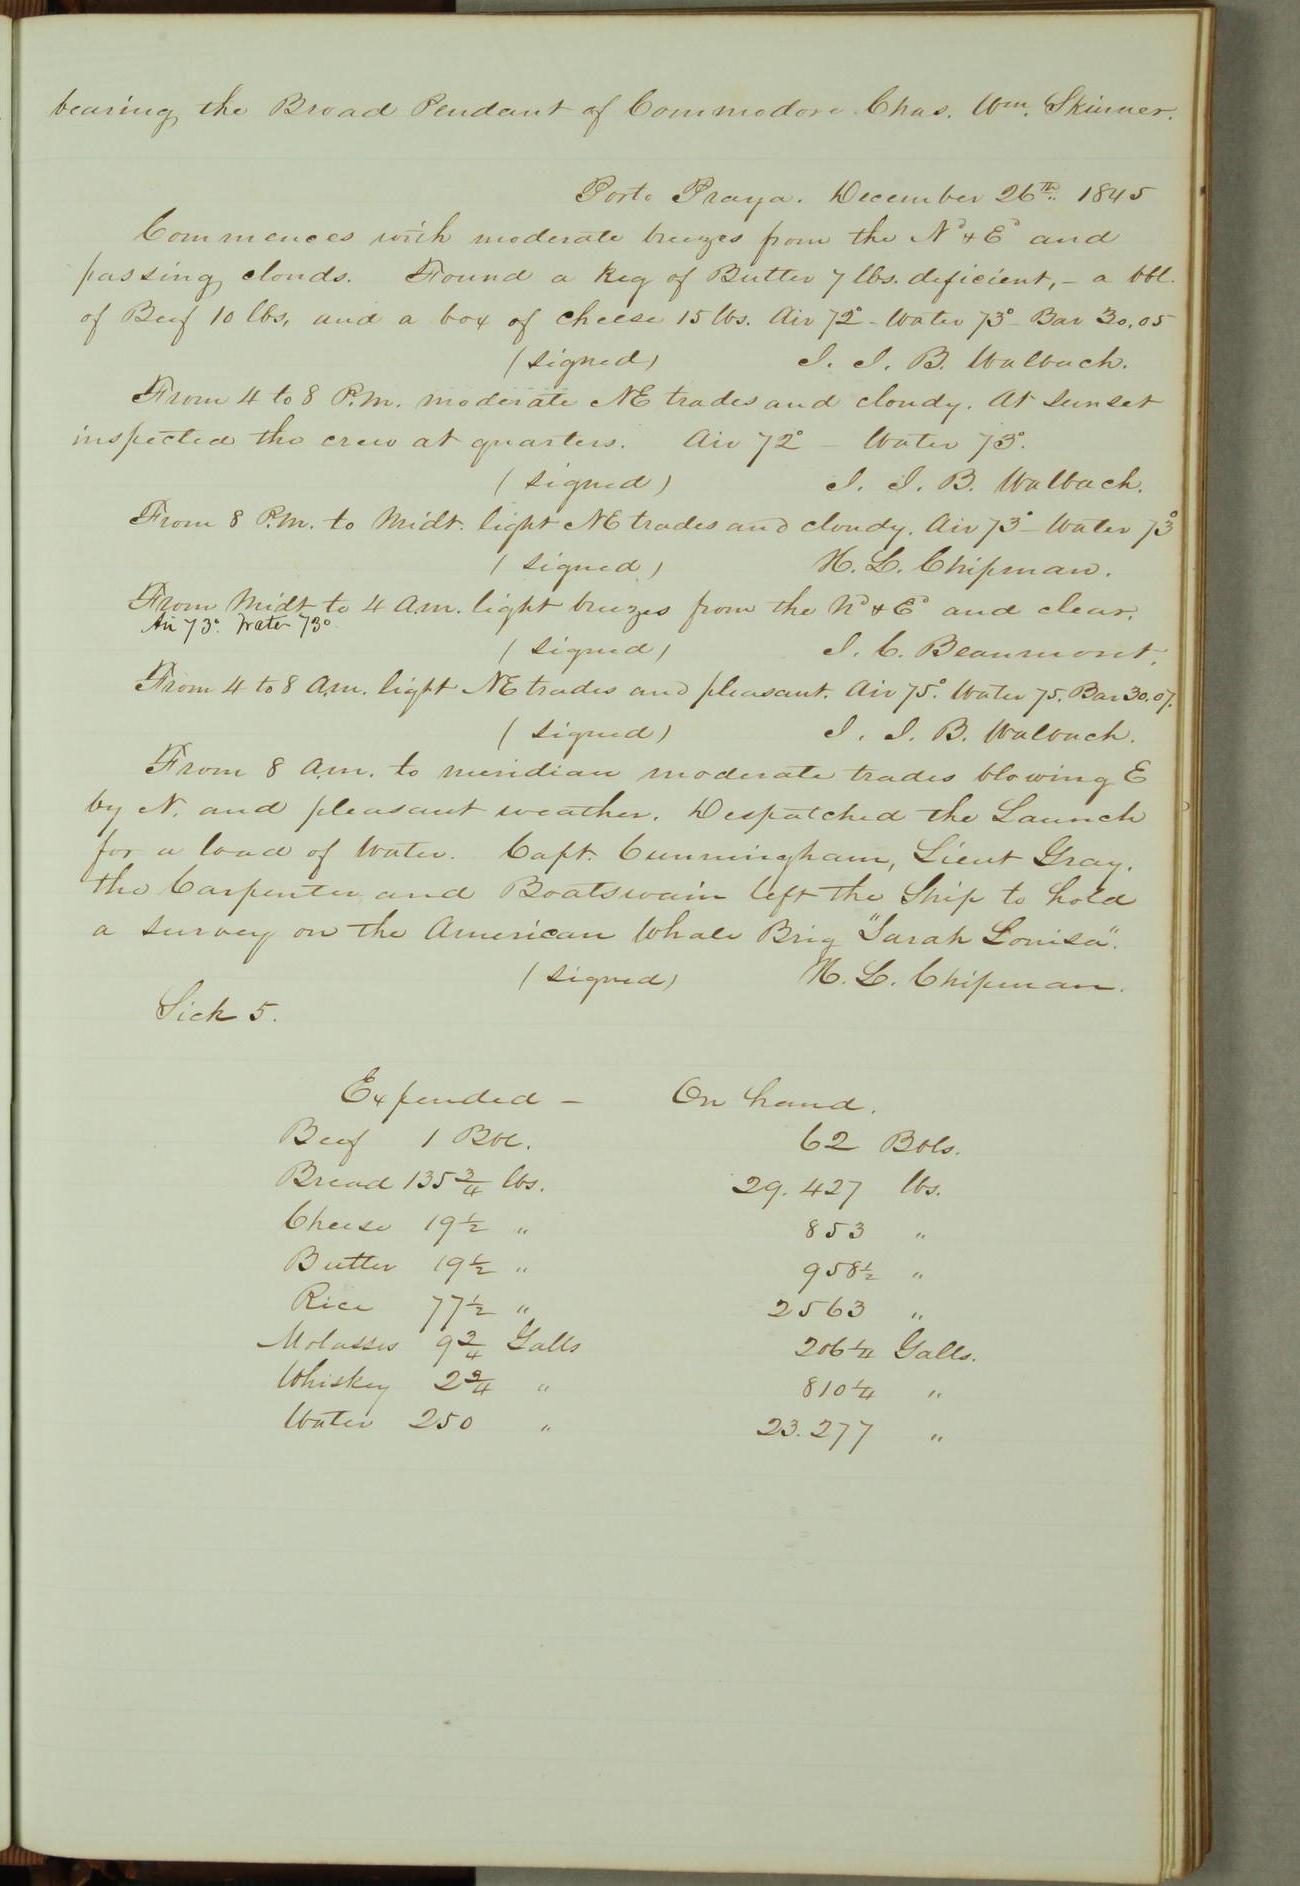 bearing the Broad Pendant of Commodore Chas. Wm. Skinner.
Porto Praya. December 26th. 1845
Commences with moderate breezes from the Nd & Ed and
passing clouds. Found a Keg of Butter 7 lbs. deficient, - a bbl.
of Beef 10 lbs, and a box of cheese 15 lbs. Air 72° - Water 73° - Bar 30.05
(signed) J. J. B. Walbach.
From 4 to 8 P.M. moderate NE trades and cloudy. At sunset
inspected the crew at quarters. Air 72° - Water 73°.
(signed) J. J. B. Walbach.
From 8 P.M. to Midt. light NE trades and cloudy. Air 73° - Water 73°
(signed) H. L. Chipman.
From Midt. to 4 A.m. light breezes from the Nd & Ed and clear.
Air 73°. Water 73°.
(signed) J. C. Beaumont.
From 4 to 8 A.m. light NE trades and pleasant. Air 75°. Water 75. Bar 30.07.
(signed) J. J. B. Walbach.
From 8 A.m. to meridian moderate trades blowing E
by N. and pleasant weather. Despatched the Launch
for a load of Water. Capt. Cunningham, Lieut Gray,
the Carpenter and Boatswain left the Ship to hold
a survey on the American Whale Brig "Sarah Louisa".
(signed) H. L. Chipman.
Sick 5.
Expended - On hand.
Beef 1 Bbl. 62 Bbls.
Bread 135 3/4 lbs. 29.427 lbs.
Cheese 19 1/2 " 853 "
Butter 19 1/2 " 958 1/2 "
Rice 77 1/2 " 2563 "
Molasses 9 3/4 Galls 206 1/4 Galls.
Whiskey 2 3/4 " 810 1/4 "
Water 250 " 23.277 "